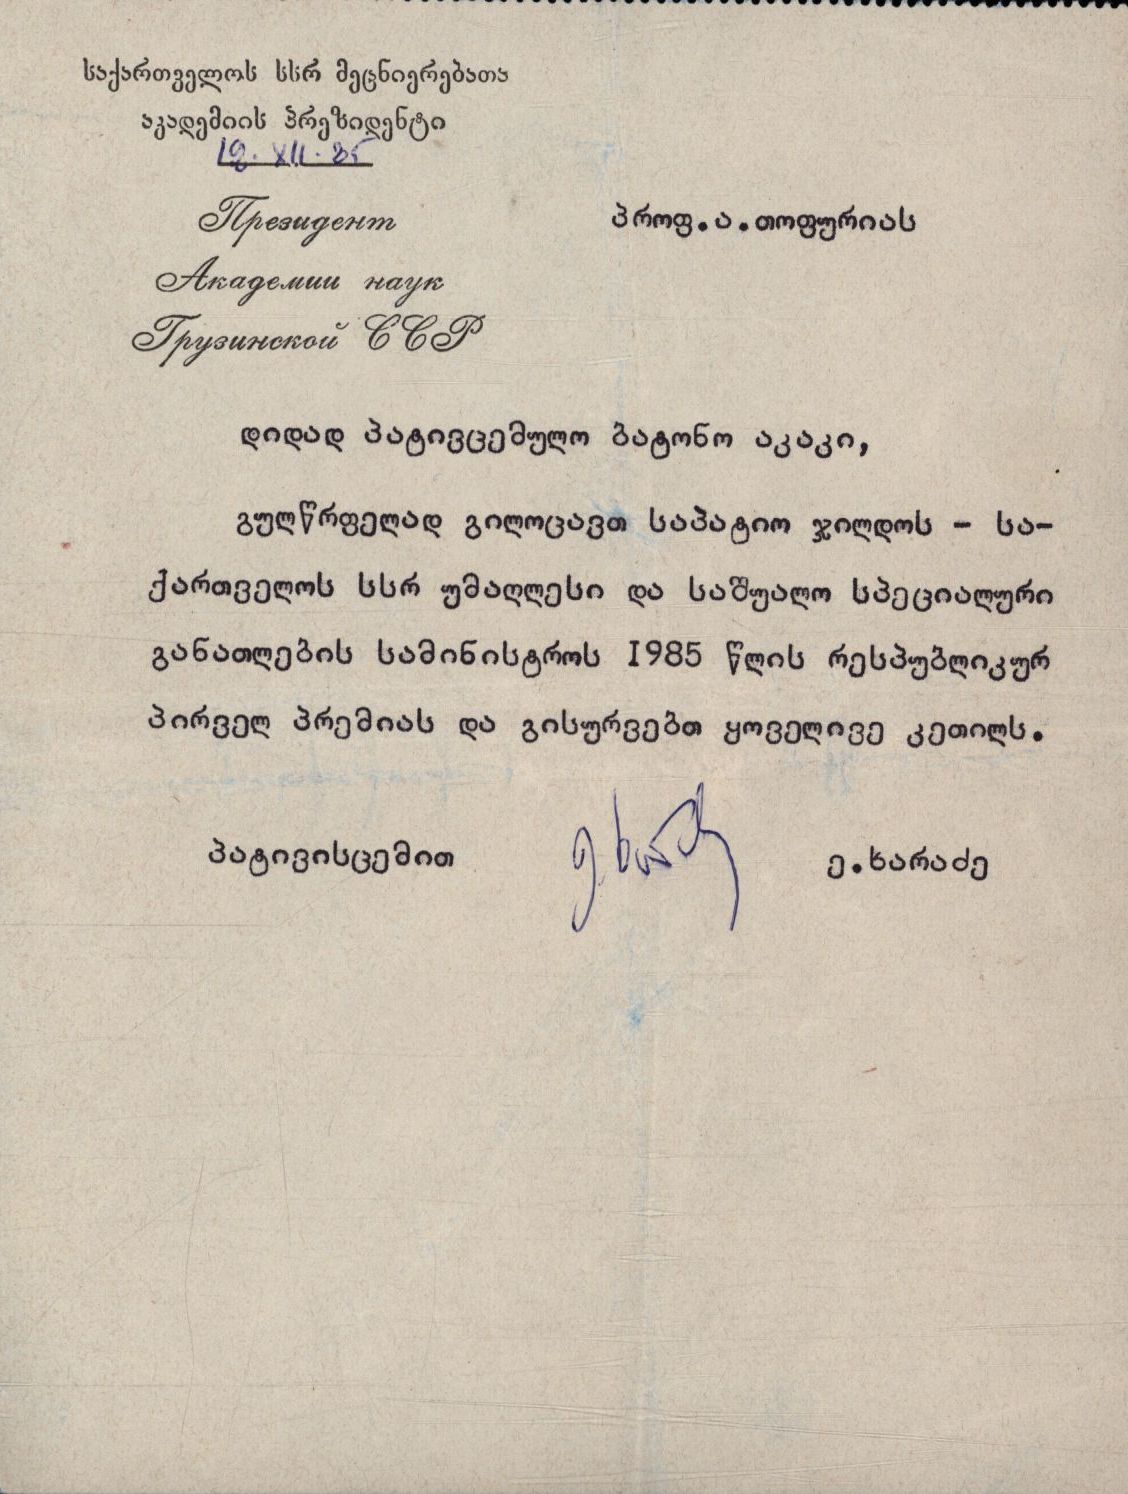 საქართველოს სსრ მეცნიერებათა
აკადემიის პრეზიდენტი
19. XII. 85
Президент
Академии наук
Грузинской ССР
პროფ.ა.თოფურიას
დიდად პატივცემულო ბატონო აკაკი,
გულწრფელად გილოცავთ საპატიო ჯილდოს - სა-
ქართველოს სსრ უმაღლესი და საშუალო სპეციალური
განათლების სამინისტროს 1985 წლის რესპუბლიკურ
პირველ პრემიას და გისურვებთ ყოველივე კეთილს.
პატივისცემით ე.ხარაძე